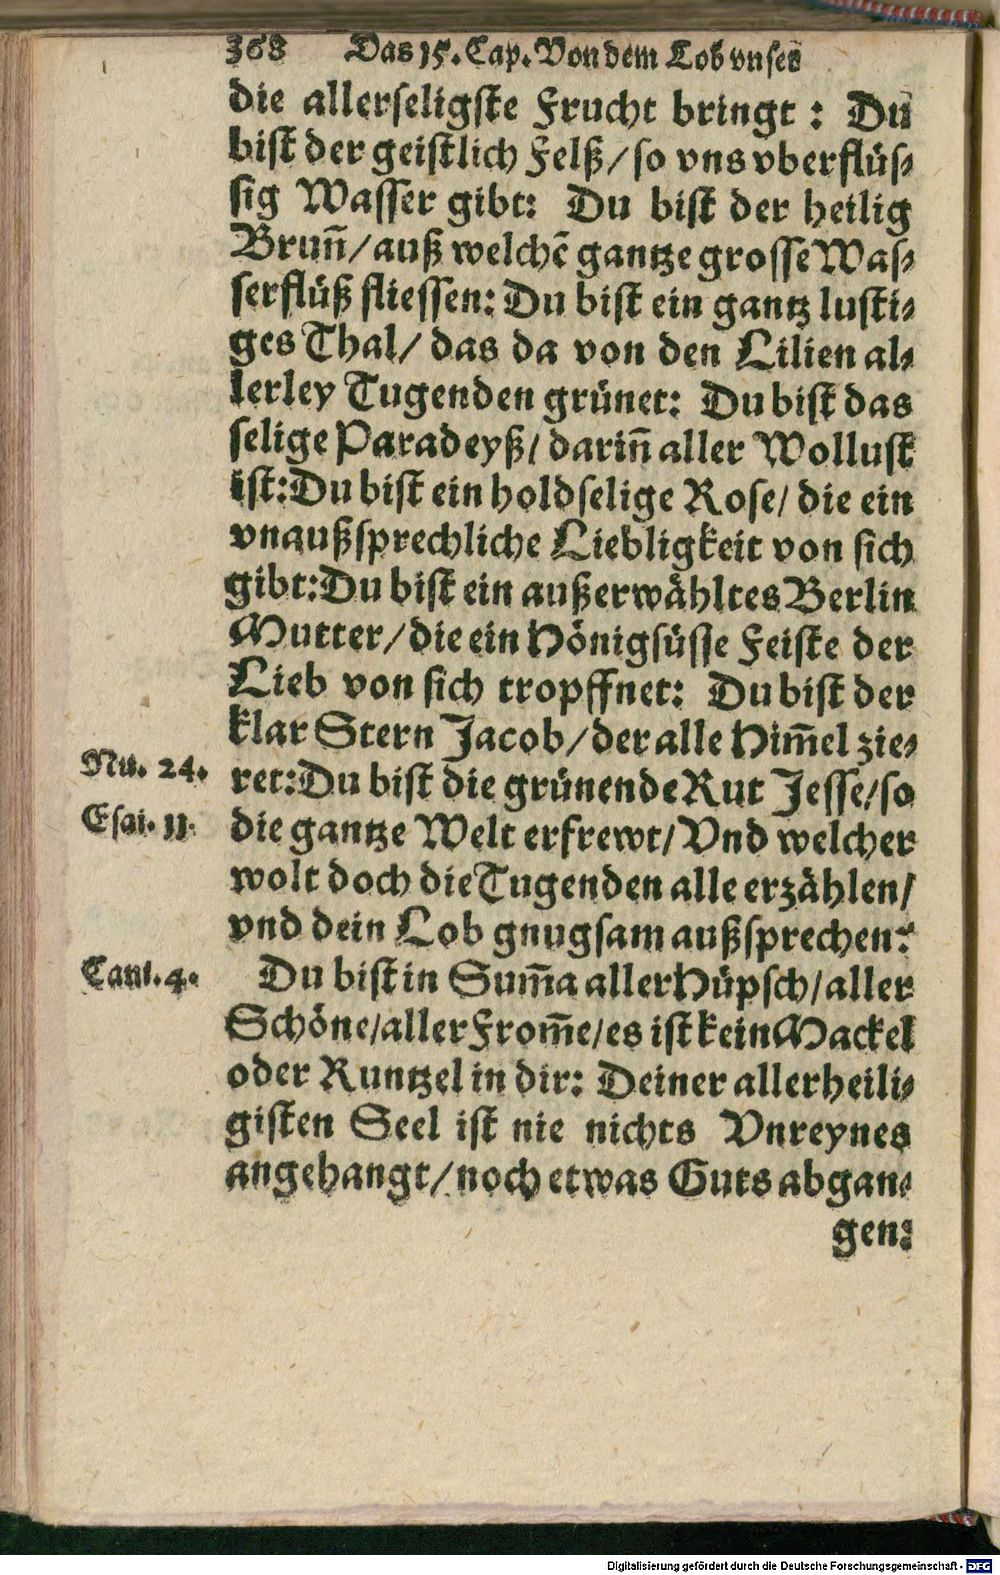 368 Das 15. Cap. Von dem Lob vnser
die allerseligste Frucht bringt : Du
bist der geistlich Felß/ so vns vberflüs⸗
sig Wasser gibt: Du bist der heilig
Brun̄/ auß welchē gantze grosse Was⸗
serflüß fliessen: Du bist ein gantz lusti⸗
ges Thal/ das da von den Lilien al⸗
lerley Tugenden grünet: Du bist das
selige Paradeyß/ darin̄ aller Wollust
ist: Du bist ein holdselige Rose/ die ein
vnaußsprechliche Liebligkeit von sich
gibt: Du bist ein außerwähltes Berlin
Mutter/ die ein Hönigsüsse Feiste der
Lieb von sich tropffnet: Du bist der
klar Stern Jacob/ der alle Him̄el zie⸗
Nū. 24. ret: Du bist die grünende Rut Jesse/ so
Esai. 11. die gantze Welt erfrewt/ Vnd welcher
wolt doch die Tugenden alle erzählen/
vnd dein Lob gnugsam außsprechen?
Cant. 4. Du bist in Sum̄a aller Hüpsch/ aller
Schöne/ aller From̄e/ es ist kein Mackel
oder Runtzel in dir: Deiner allerheili⸗
gisten Seel ist nie nichts Vnreynes
angehangt/ noch etwas Guts abgan⸗
gen:
Digitalisierung gefördert durch die Deutsche Forschungsgemeinschaft - DFG